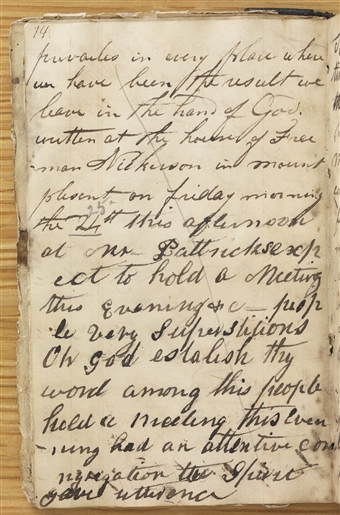 14.
prevailes in every place where
we have been, the result we
leave in the hand of God.
written at the house of Free
man Nickerson in mount
plesent on friday morning
25
the 24th this afternoon
at Mr. Pattricks exp
ect to hold a Meeting
this Evening &c — peop
le very Superstitious
Oh God establish thy
word among this people
held a meeting this even
-ning had an attentive con
ngregation the Spirit
gave utterance